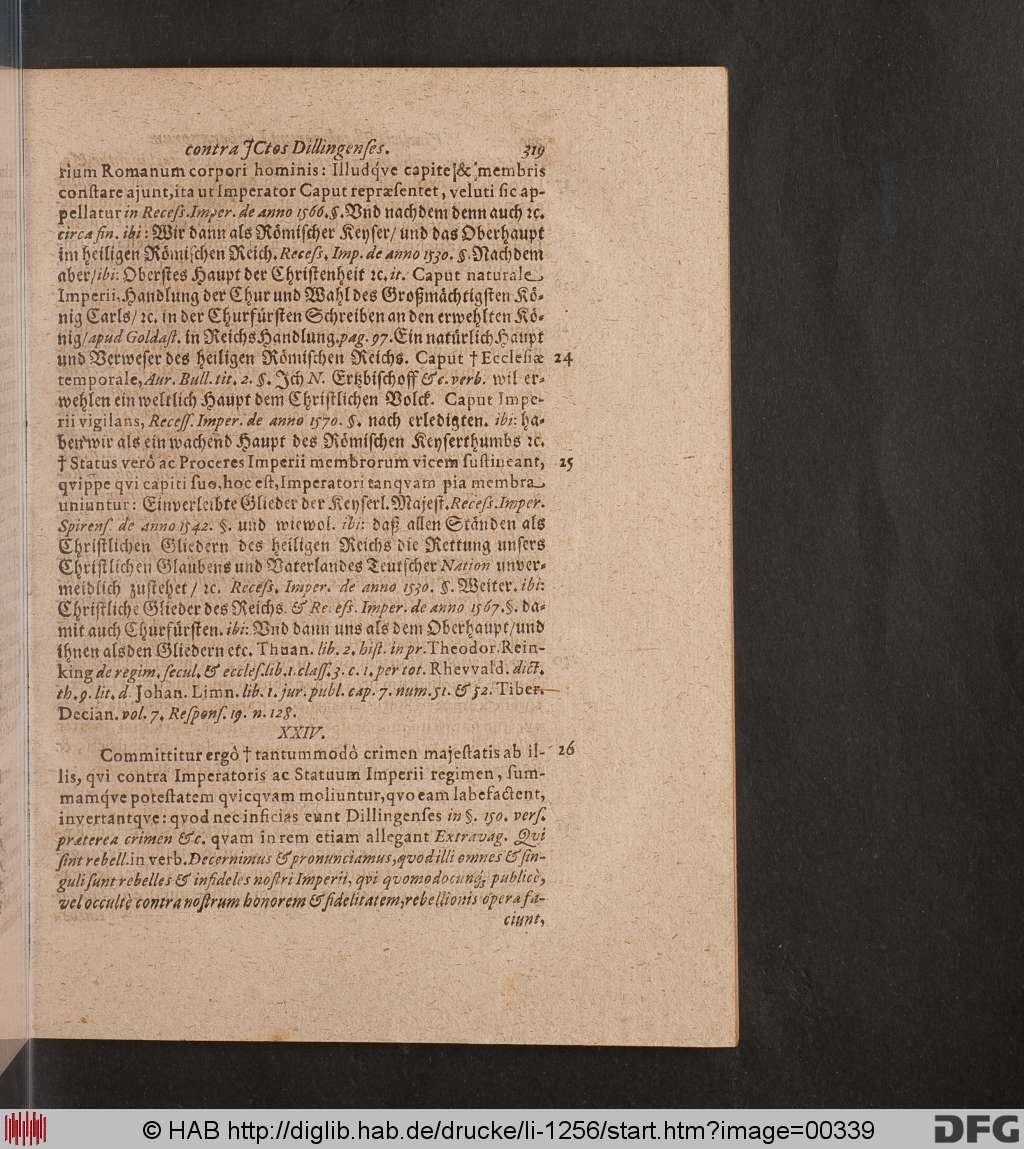 contra JCtos Dillingenses. 319
rium Romanum corpori hominis: Illudq́ve capite & membris
constare ajunt, ita ut Imperator Caput repræsentet, veluti sic ap-
pellatur in Recess. Imper. de anno 1566. §. Vnd nachdem denn auch ꝛc.
circa fin. ibi: Wir dann als Römischer Keyser/ und das Oberhaupt
im heiligen Römischen Reich. Recess. Imp. de anno 1530. §. Nachdem
aber/ ibi: Oberstes Haupt der Christenheit ꝛc. it. Caput naturale
Imperii, Handlung der Chur und Wahl des Großmächtigsten Kö-
nig Carls/ ꝛc. in der Churfürsten Schreiben an den erwehlten Kö-
nig/ apud Goldast. in ReichsHandlung. pag. 97. Ein natürlich Haupt
und Verweser des heiligen Römischen Reichs. Caput † Ecclesiæ 24
temporale, Aur. Bull. tit. 2. §. Ich N. Ertzbischoff &c. verb. wil er-
wehlen ein weltlich Haupt dem Christlichen Volck. Caput Impe-
rii vigilans, Recess. Imper. de anno 1570. §. nach erledigten. ibi: ha-
ben wir als ein wachend Haupt des Römischen Keyserthumbs ꝛc.
† Status verò ac Proceres Imperii membrorum vicem sustineant, 25
qvippe qvi capiti suo, hoc est, Imperatori tanqvam pia membra
uniuntur: Einverleibte Glieder der Keyserl. Majest. Recess. Imper.
Spirens. de anno 1542. §. und wiewol. ibi: daß allen Ständen als
Christlichen Gliedern des heiligen Reichs die Rettung unsers
Christlichen Glaubens und Vaterlandes Teutscher Nation unver-
meidlich zustehet/ ꝛc. Recess. Imper. de anno 1530. §. Weiter. ibi:
Christliche Glieder des Reichs. & Recess. Imper. de anno 1567. §. da-
mit auch Churfürsten. ibi: Vnd dann uns als dem Oberhaupt/ und
ihnen als den Gliedern etc. Thuan. lib. 2. hist. in pr. Theodor. Rein-
king de regim. secul. & eccles. lib. 1. class. 3. c. 1. per tot. Rhevvald. dict.
th. 9. lit. d. Johan. Limn. lib. 1. jur. publ. cap. 7. num. 51. & 52. Tiber.
Decian. vol. 7. Respons. 19. n. 128.
XXIV.
Committitur ergò † tantummodò crimen majestatis ab il- 26
lis, qvi contra Imperatoris ac Statuum Imperii regimen, sum-
mamq́ve potestatem qvicqvam moliuntur, qvo eam labefactent,
invertantqve: qvod nec inficias eunt Dillingenses in §. 150. vers.
præterea crimen &c. qvam in rem etiam allegant Extravag. Qvi
sint rebell. in verb. Decernimus & pronunciamus, qvod illi omnes & sin-
guli sunt rebelles & infideles nostri Imperii, qvi qvomodocunq́; publicè,
vel occultè contra nostrum honorem & fidelitatem, rebellionis opera fa-
ciunt,
© HAB http://diglib.hab.de/drucke/li-1256/start.htm?image=00339
DFG